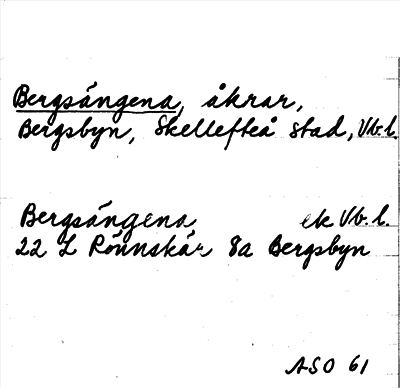 Bergsängena, åkrar,
Bergsbyn, Skellefteå stad, Vb.l.
Bergsängena ek Vb. l.
22 L Rönnskär 8a Bergsbyn
ASO 61